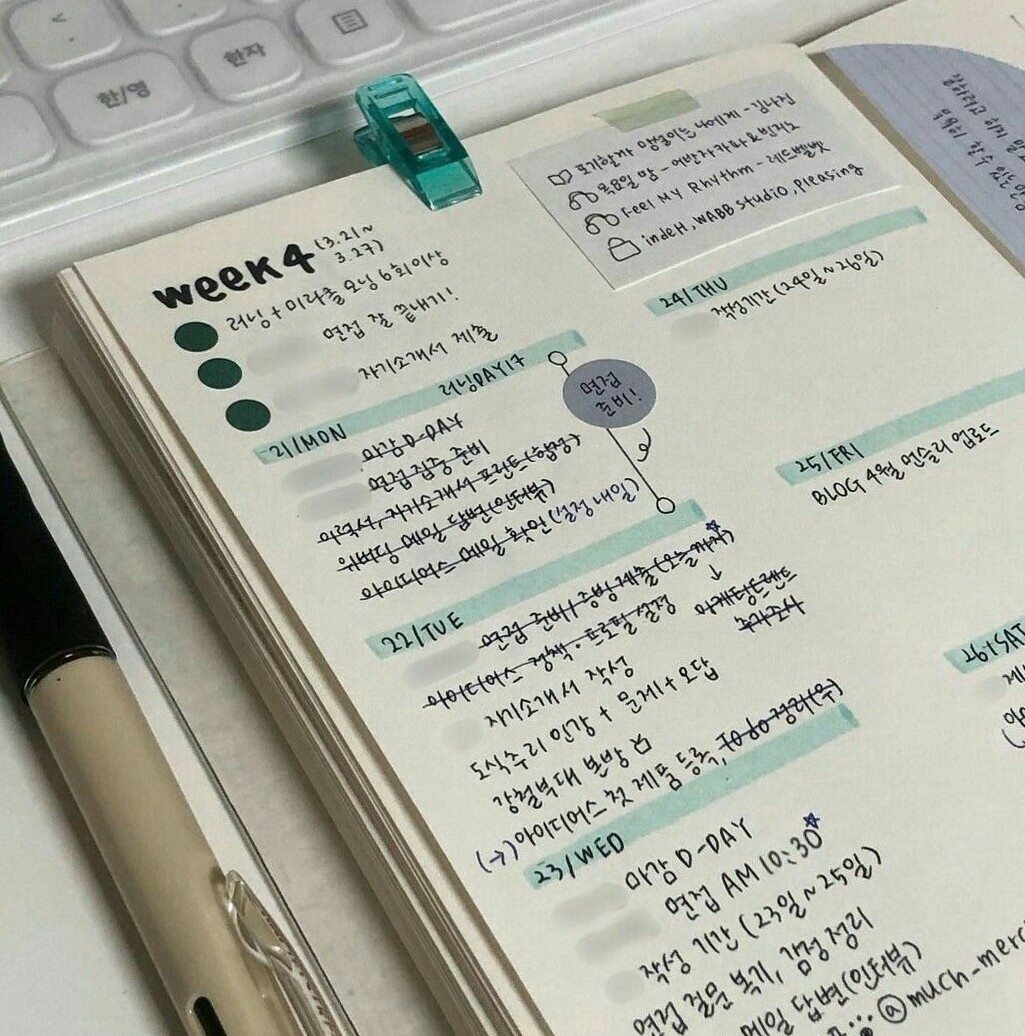 한/영
한자
포기할까 망설이는 나에게 - 김나진
목요일 밤 - 어반자카파 & 빈지노
Feel My Rhythm - 레드벨벳
indeH, WABB studio, pleasing
week4 (3.21~
3.27)
러닝 + 미라클 모닝 6회 이상
면접 잘 끝내기!
자기소개서 제출
러닝DAY17
21/MON
마감 D-DAY
면접 집중 준비
이력서, 자기소개서 프린트(합정)
위버딩 메일 답변(인터뷰)
아이디어스 메일 확인(일정 내일)
면접
준비!
22/TUE
면접 준비/증빙 제출(오늘까지)
아이디어스 정책·프로필 설정
↓
마케팅트렌드
추가조사
자기소개서 작성
도식추리 인강 + 문제 + 오답
강철부대 본방
(→)아이디어스 첫 제품 등록, TOGO 정리(우)
23/WED
마감 D-DAY
면접 AM 10:30
작성 기간 (23일~25일)
면접 질문 복기, 감정 정리
메일 답변(인터뷰)
24/THU
작성기간(24일~26일)
25/FRI
BLOG 4월 먼슬리 업로드
26/SAT
@much_merc